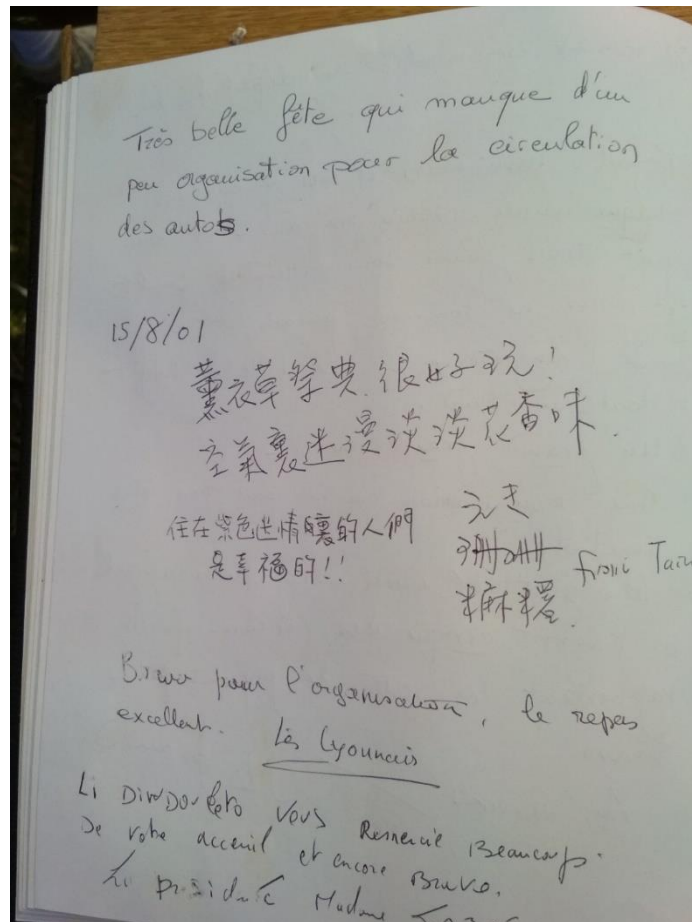 Très belle fête qui manque d'un
peu organisation pour la circulation
des autos.
15/8/01
薰衣草祭典 很好玩!
空氣裏迷漫淡淡花香味.
住在紫色迷情裏的人們
是幸福的!!
元き
珊珊 from
麻糬.
Bravo pour l'organisation, le repas
excellent. Les Lyonnais
Li DinDouleto vous Remercie Beaucoup.
De votre acceuil et encore Bravo.
La présidente Madame